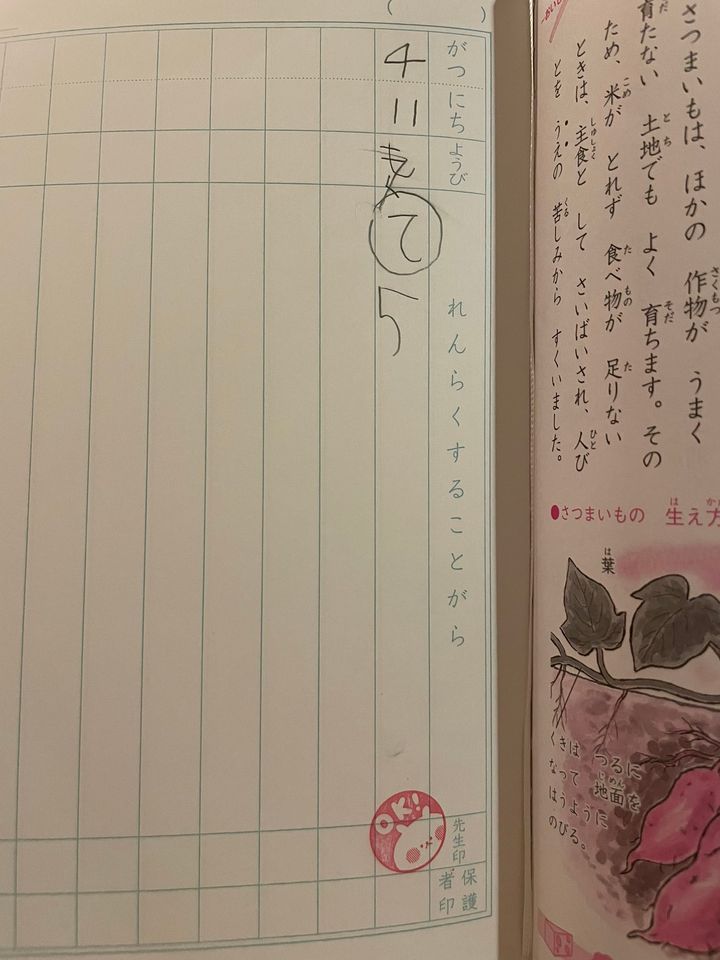 さつまいもは、ほかの 作物が うまく
育たない 土地でも よく 育ちます。その
ため、米が とれず 食べ物が 足りない
ときは、主食と して さいばいされ、人び
とを うえの 苦しみから すくいました。
●さつまいもの 生え方
葉
くきは つるに
なって 地面を
はうように
のびる。
がつ にち ようび れんらくすることがら 先生印 保護者印
4 11 て 5
OK!